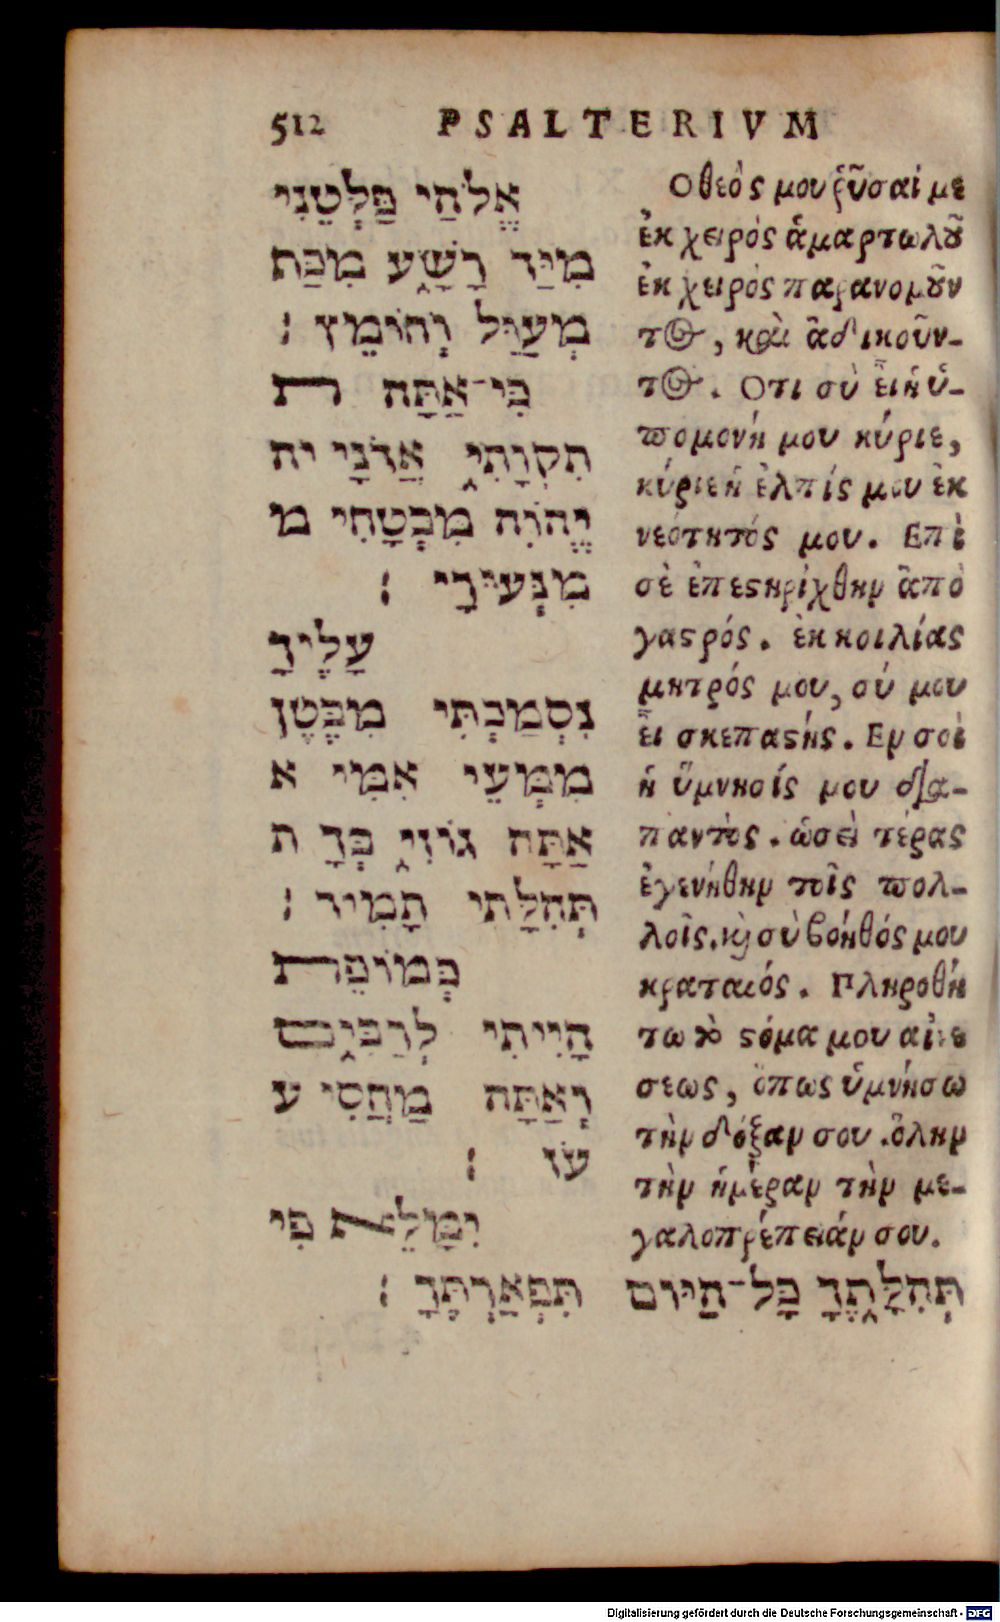 512 PSALTERIVM
אֱלֹהַי פַּלְּטֵנִי
מִיַּד רָשָׁע מִכַּת
מְעַוֵּל וְחוֹמֵץ׃
כִּי־אַתָּה ת
תִקְוָתִי אֲדֹנָי יה
יֱהוִֹה מִבְטָחִי מ
מִנְּעוּרָי׃
עָלֶיךָ
נִסְמַכְתִּי מִבֶּטֶן
מִמְּעֵי אִמִּי א
אַתָּה גוֹזִי בְּךָ ת
תְּהִלָּתִי תָמִיד׃
כְּמוֹפֵת
הָיִיתִי לְרַבִּים
וְאַתָּה מַחֲסִי ע
עֹז׃
יִמָּלֵא פִי
Ὁ θεός μου ῥῦσαί με
ἐκ χειρός ἁμαρτωλοῦ
ἐκ χειρός παρανομοῦν
τος, καὶ ἀδικοῦν-
τος. Οτι σὺ εἶ ἡ ὑ-
πομονή μου κύριε,
κύριε ἡ ἐλπίς μου ἐκ
νεότητός μου. Επὶ
σὲ ἐπεστηρίχθην ἀπὸ
γαστρός. ἐκ κοιλίας
μητρός μου, σύ μου
εἶ σκεπαστής. Εν σοὶ
ἡ ὕμνησίς μου δια-
παντὸς. ὡσεὶ τέρας
ἐγενήθην τοῖς πολ-
λοῖς. καὶ σὺ βοηθός μου
κραταιός. Πληροθή
τω τὸ στόμα μου αἰνε
σεως, ὅπως ὑμνήσω
τὴν δόξαν σου. ὅλην
τὴν ἡμέραν τὴν με-
γαλοπρέπειάν σου.
תְּהִלָּתֶךָ כָּל־הַיּוֹם תִּפְאַרְתֶּךָ׃
Digitalisierung gefördert durch die Deutsche Forschungsgemeinschaft - DFG